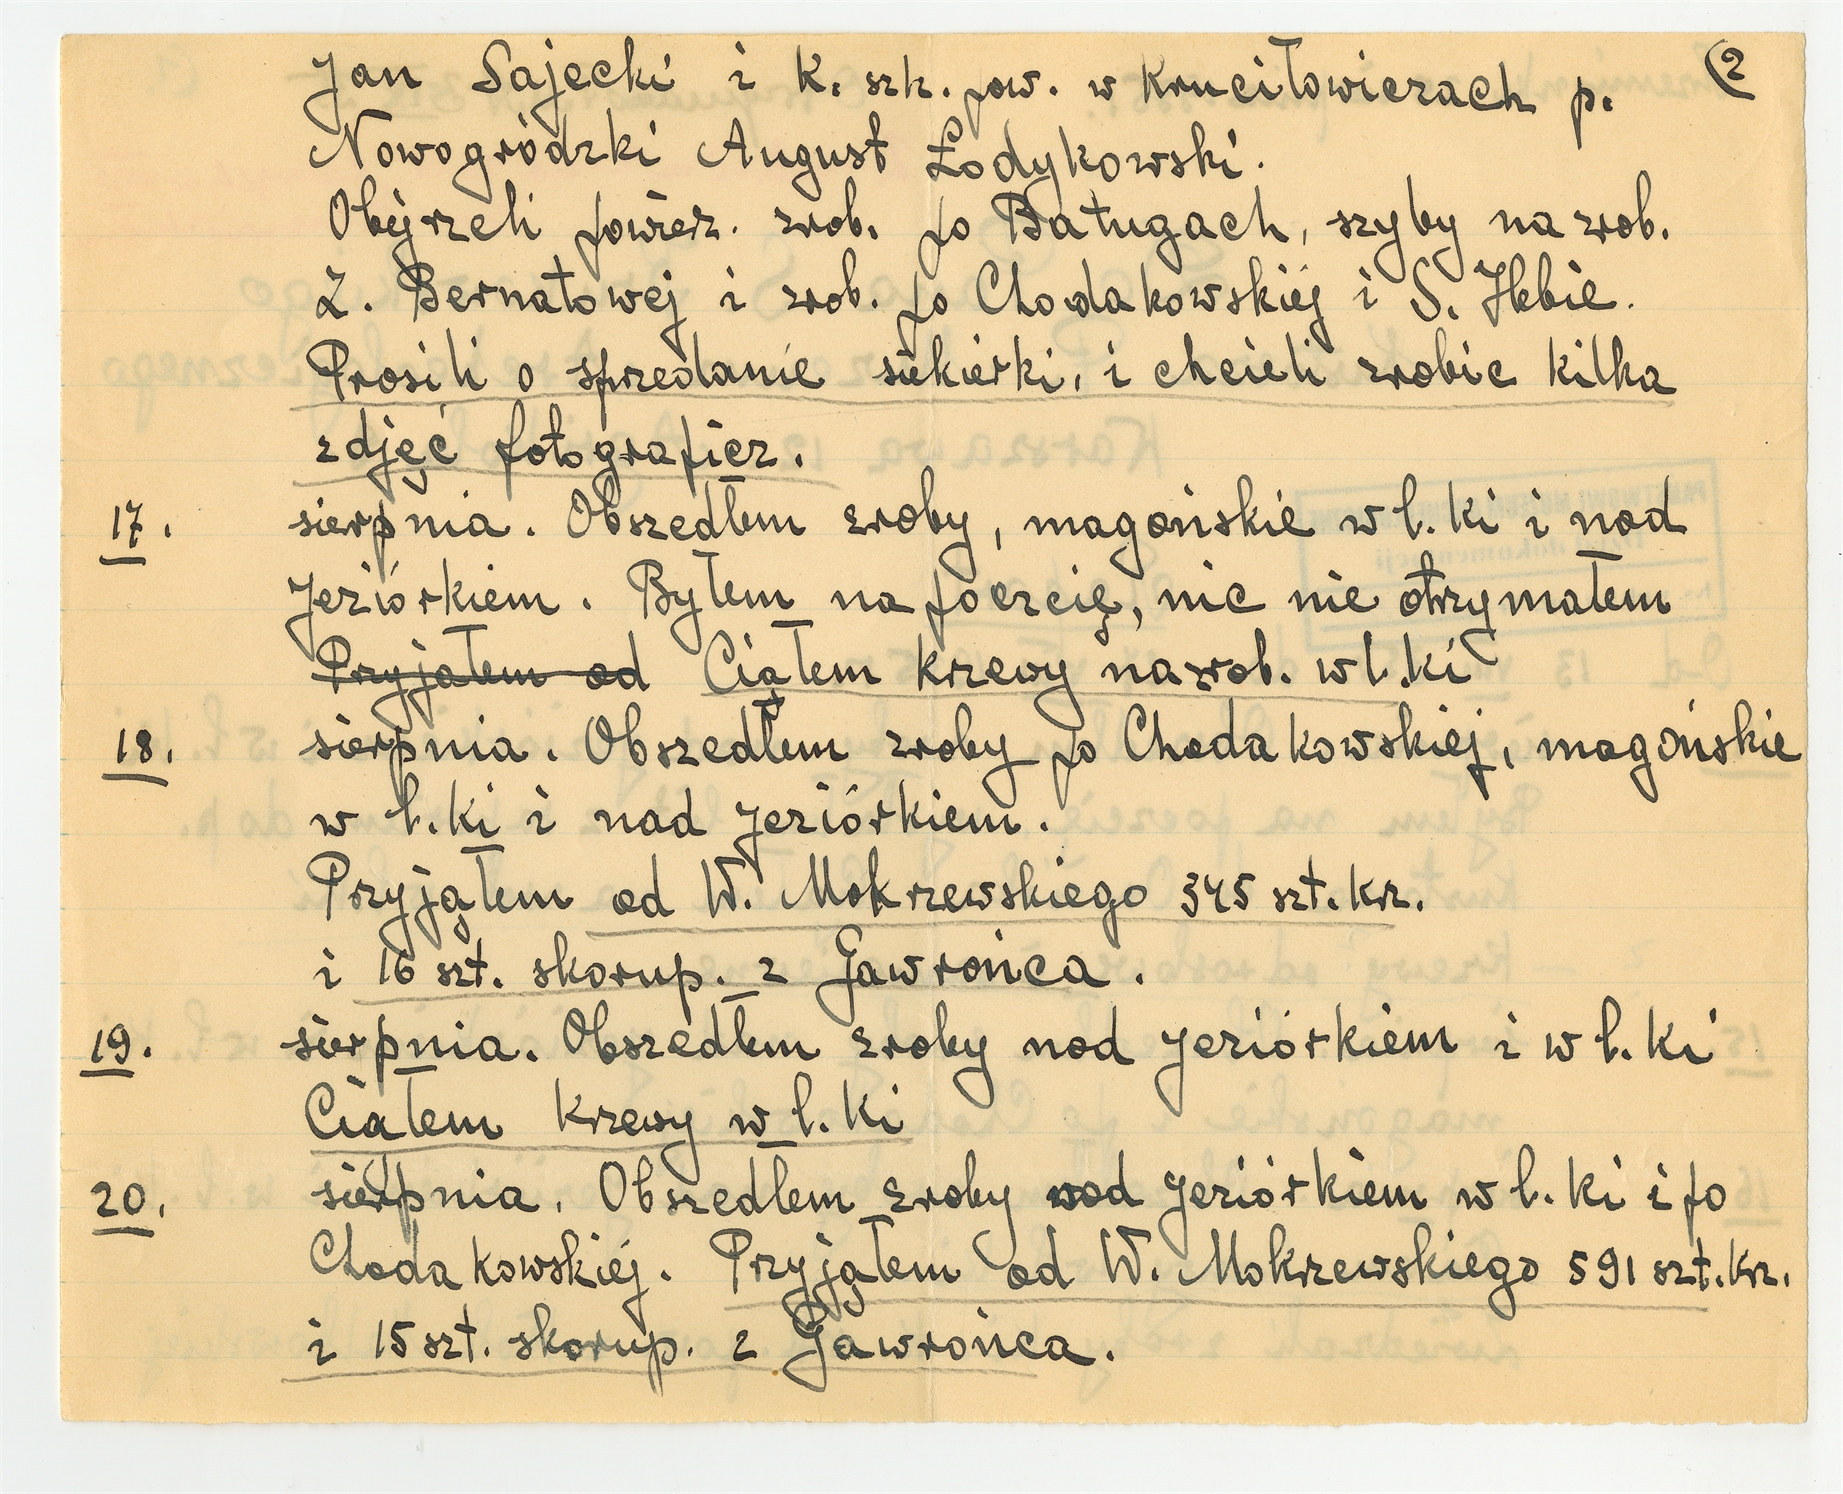 (2
Jan Sajecki i K. szk. pow. w Kruciłowiczach p.
Nowogródzki August Łodykowski.
Obejrzeli powierz. zrob. po Baługach, szyby na zrob.
Ż. Bernatowej i zrob. po Chodakowskiej i S. Hebie.
Prosili o sprzedanie siekierki, i chcieli zrobic kilka
zdjęć fotograficz.
17. sierpnia. Obszedłem zroby, magońskie w l. ki i nad
Jeziórkiem. Byłem na poczcię, nic nie otrzymałem
Pryjałem od Ciąłem krzewy na zrob. w l. ki
18. sierpnia. Obszedłem zroby po Chodakowskiej, magońskie
w l. ki i nad Jeziórkiem.
Pryjąłem od W. Mokrzewskiego 345 szt. kr.
i 16 szt. skorup. z Gawrońca.
19. sierpnia. Obszedłem zroby nad Jeziórkiem i w l. ki
Ciałem krzewy w l. ki
20. sierpnia. Obszedłem zroby nad Jeziórkiem w l. ki i po
Chodakowskiej. Pryjąłem od W. Mokrzewskiego 591 szt. kr.
i 15 szt. skorup. z Gawrońca.